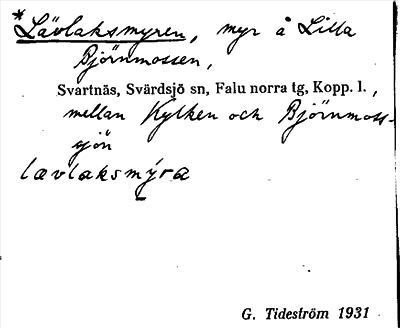 *Lävlaksmyren, myr å Lilla
Björnmossen,
Svartnäs, Svärdsjö sn, Falu norra tg, Kopp. l.,
mellan Kylken och Björnmoss-
sjön
lævlaksmýra
G. Tideström 1931